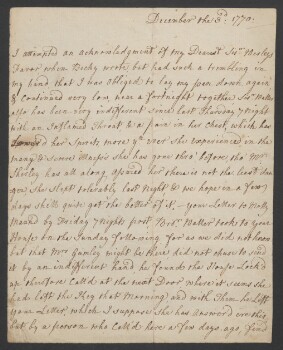 December the 3d. 1770.
I attempted an acknowledgment of my Dearest
Favor when Becky wrote, but had such a trembling in
my hand that I was obliged to lay my pen down again
& Continued very low near a fortnight together
also has been very indifferent since last Thursday night
with an Inflamed Throat & a pain in her Chest, which has
her Spirits more yn. ever She experienced in the
many & severe she has gone thro' before, tho' Mrs.
Shirley has all along assured her there is not the least dan
ger, She slept tolerable last Night & we hope in a few
days she'll quite get the better of it, – your Letter to Molly
by Friday Night's post Bror. took to your
House on the Sunday following for as we did not know
but that Mrs. might be there did not chuse to send
it by an indifferent hand he found the House Lock'd
up therefore Call'd at the next Door where it seems she
had left the Key that Morning and with Them he left
your Letter, which I suppose she has answer'd ere this
but by a person who Call'd here a few days ago, find